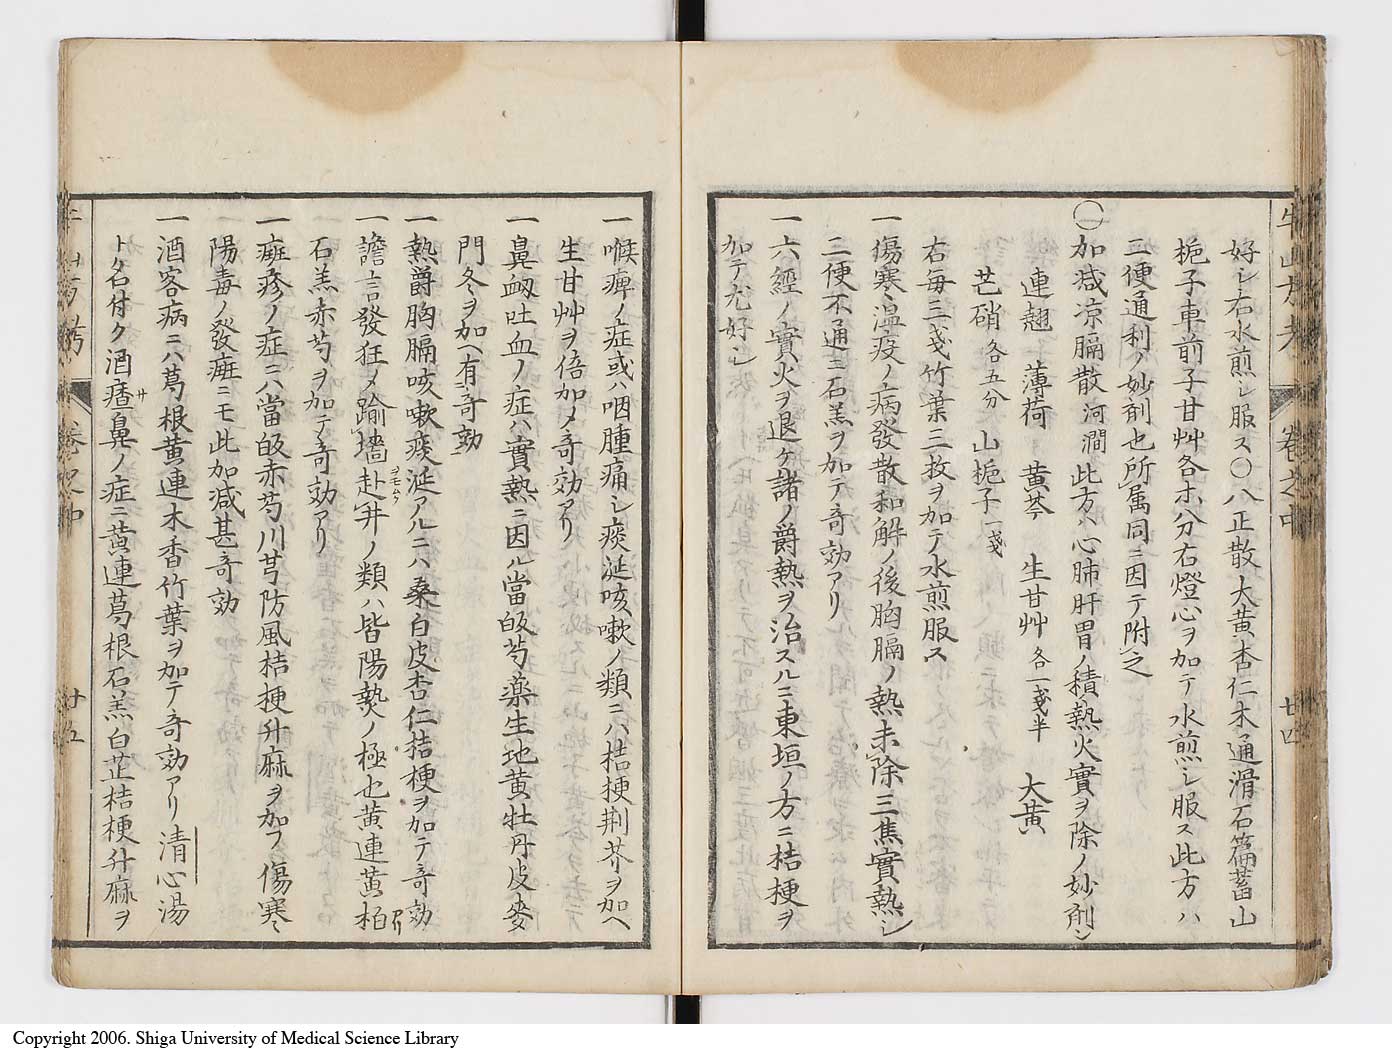 牛山方考 卷之中 廿四
好シ右水煎シ服ス○八正散大黄杏仁木通滑石萹蓄山
梔子車前子甘艸各ホ八分右燈心ヲ加テ水煎シ服ス此方ハ
二便通利ノ妙剤也所属同ニ因テ附之
○加減凉膈散 河澗 此方ハ心肺肝胃ノ積熱火實ヲ除ノ妙剤ン
連翹 薄荷 黄芩 生甘艸 各一戔半 大黄
芒硝 各五分 山梔子 一戔
右毎三戔竹葉三枚ヲ加テ水煎服ス
一傷寒温疫ノ病發散和解ノ後胸膈ノ熱未除三焦實熱シ
二便不通ニ石羔ヲ加テ奇効アリ
一六經ノ實火ヲ退ケ諸ノ爵熱ヲ治スルニ東垣ノ方ニ桔梗ヲ
加テ尤好シ
一喉痺ノ症或ハ咽腫痛シ痰涎咳嗽ノ類ニハ桔梗荆芥ヲ加ヘ
生甘艸ヲ倍加メ奇効アリ
一鼻衂吐血ノ症ハ實熱ニ因ル當皈芍藥生地黄牡丹皮麥
門冬ヲ加ヘ有奇効
一熱爵胸膈咳嗽痰涎アルニハ桑白皮杏仁桔梗ヲ加テ奇効アリ
一譫言發狂メ踰墻赴井ノ類ハ皆陽𤍠ノ極也黄連黄柏
石羔赤芍ヲ加テ奇効アリ
一癍疹ノ症ニハ當皈赤芍川芎防風桔梗升麻ヲ加フ傷寒
陽毒ノ發癍ニモ此加減甚奇効
一酒客病ニハ葛根黄連木香竹葉ヲ加テ奇効アリ清心湯
ト名付ク酒皻鼻ノ症ニ黄連葛根石羔白芷桔梗升麻ヲ
卷之中 廿五
Copyright 2006. Shiga University of Medical Science Library